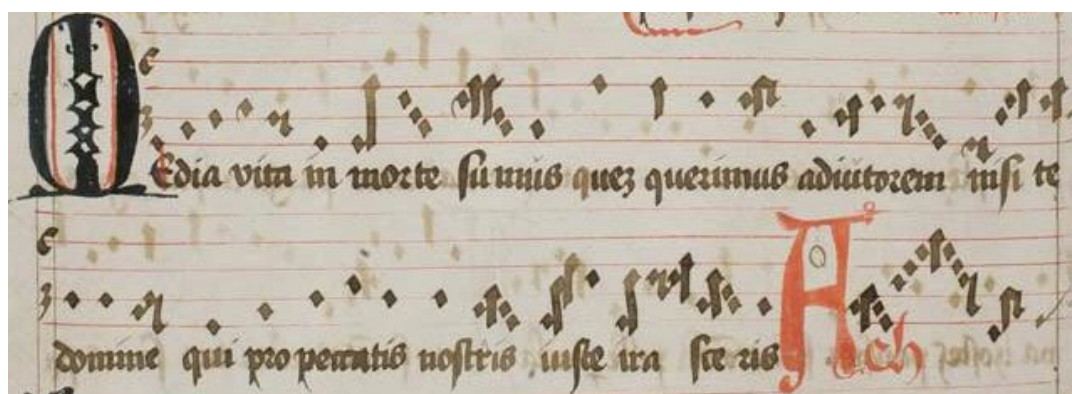 Media vita in morte sumus quez querimus adiutorem nisi te
domine qui pro peccatis nostris iuste ira sce ris Ach